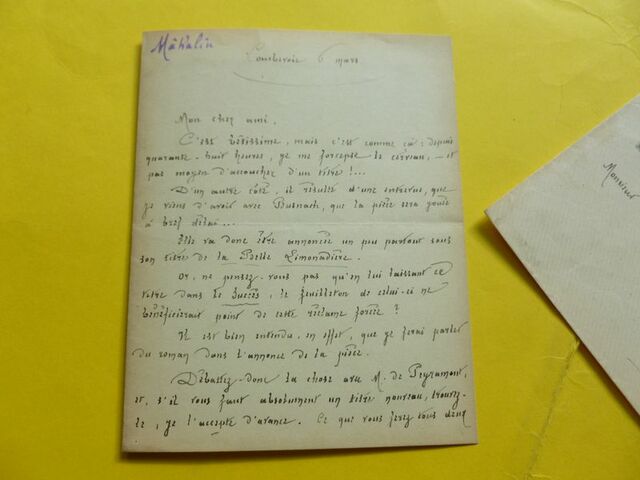 Mahalin
Courbevoie 6 mars
Mon cher ami.
C'est bêtissime, mais c'est comme ça : depuis
quarante-huit heures, je me forcepse le cerveau, — et
pas moyen d'accoucher d'un titre !...
D'un autre côté, il résulte d'une entrevue, que
je viens d'avoir avec Busnach, que la pièce sera jouée
à bref délai...
Elle va donc être annoncée un peu partout sous
son titre de la Belle Limonadière.
Or, ne pensez-vous pas qu'en lui laissant ce
titre dans le Succès, le feuilleton de celui-ci ne
bénéficierait point de cette réclame forcée ?
Il est bien entendu, en effet, que je ferai parler
du roman dans l'annonce de la pièce.
Débattez-donc la chose avec M. de Peyramont,
et, s'il vous faut absolument un titre nouveau, trouvez-
le, je l'accepte d'avance. Ce que vous ferez tous deux
Monsieur